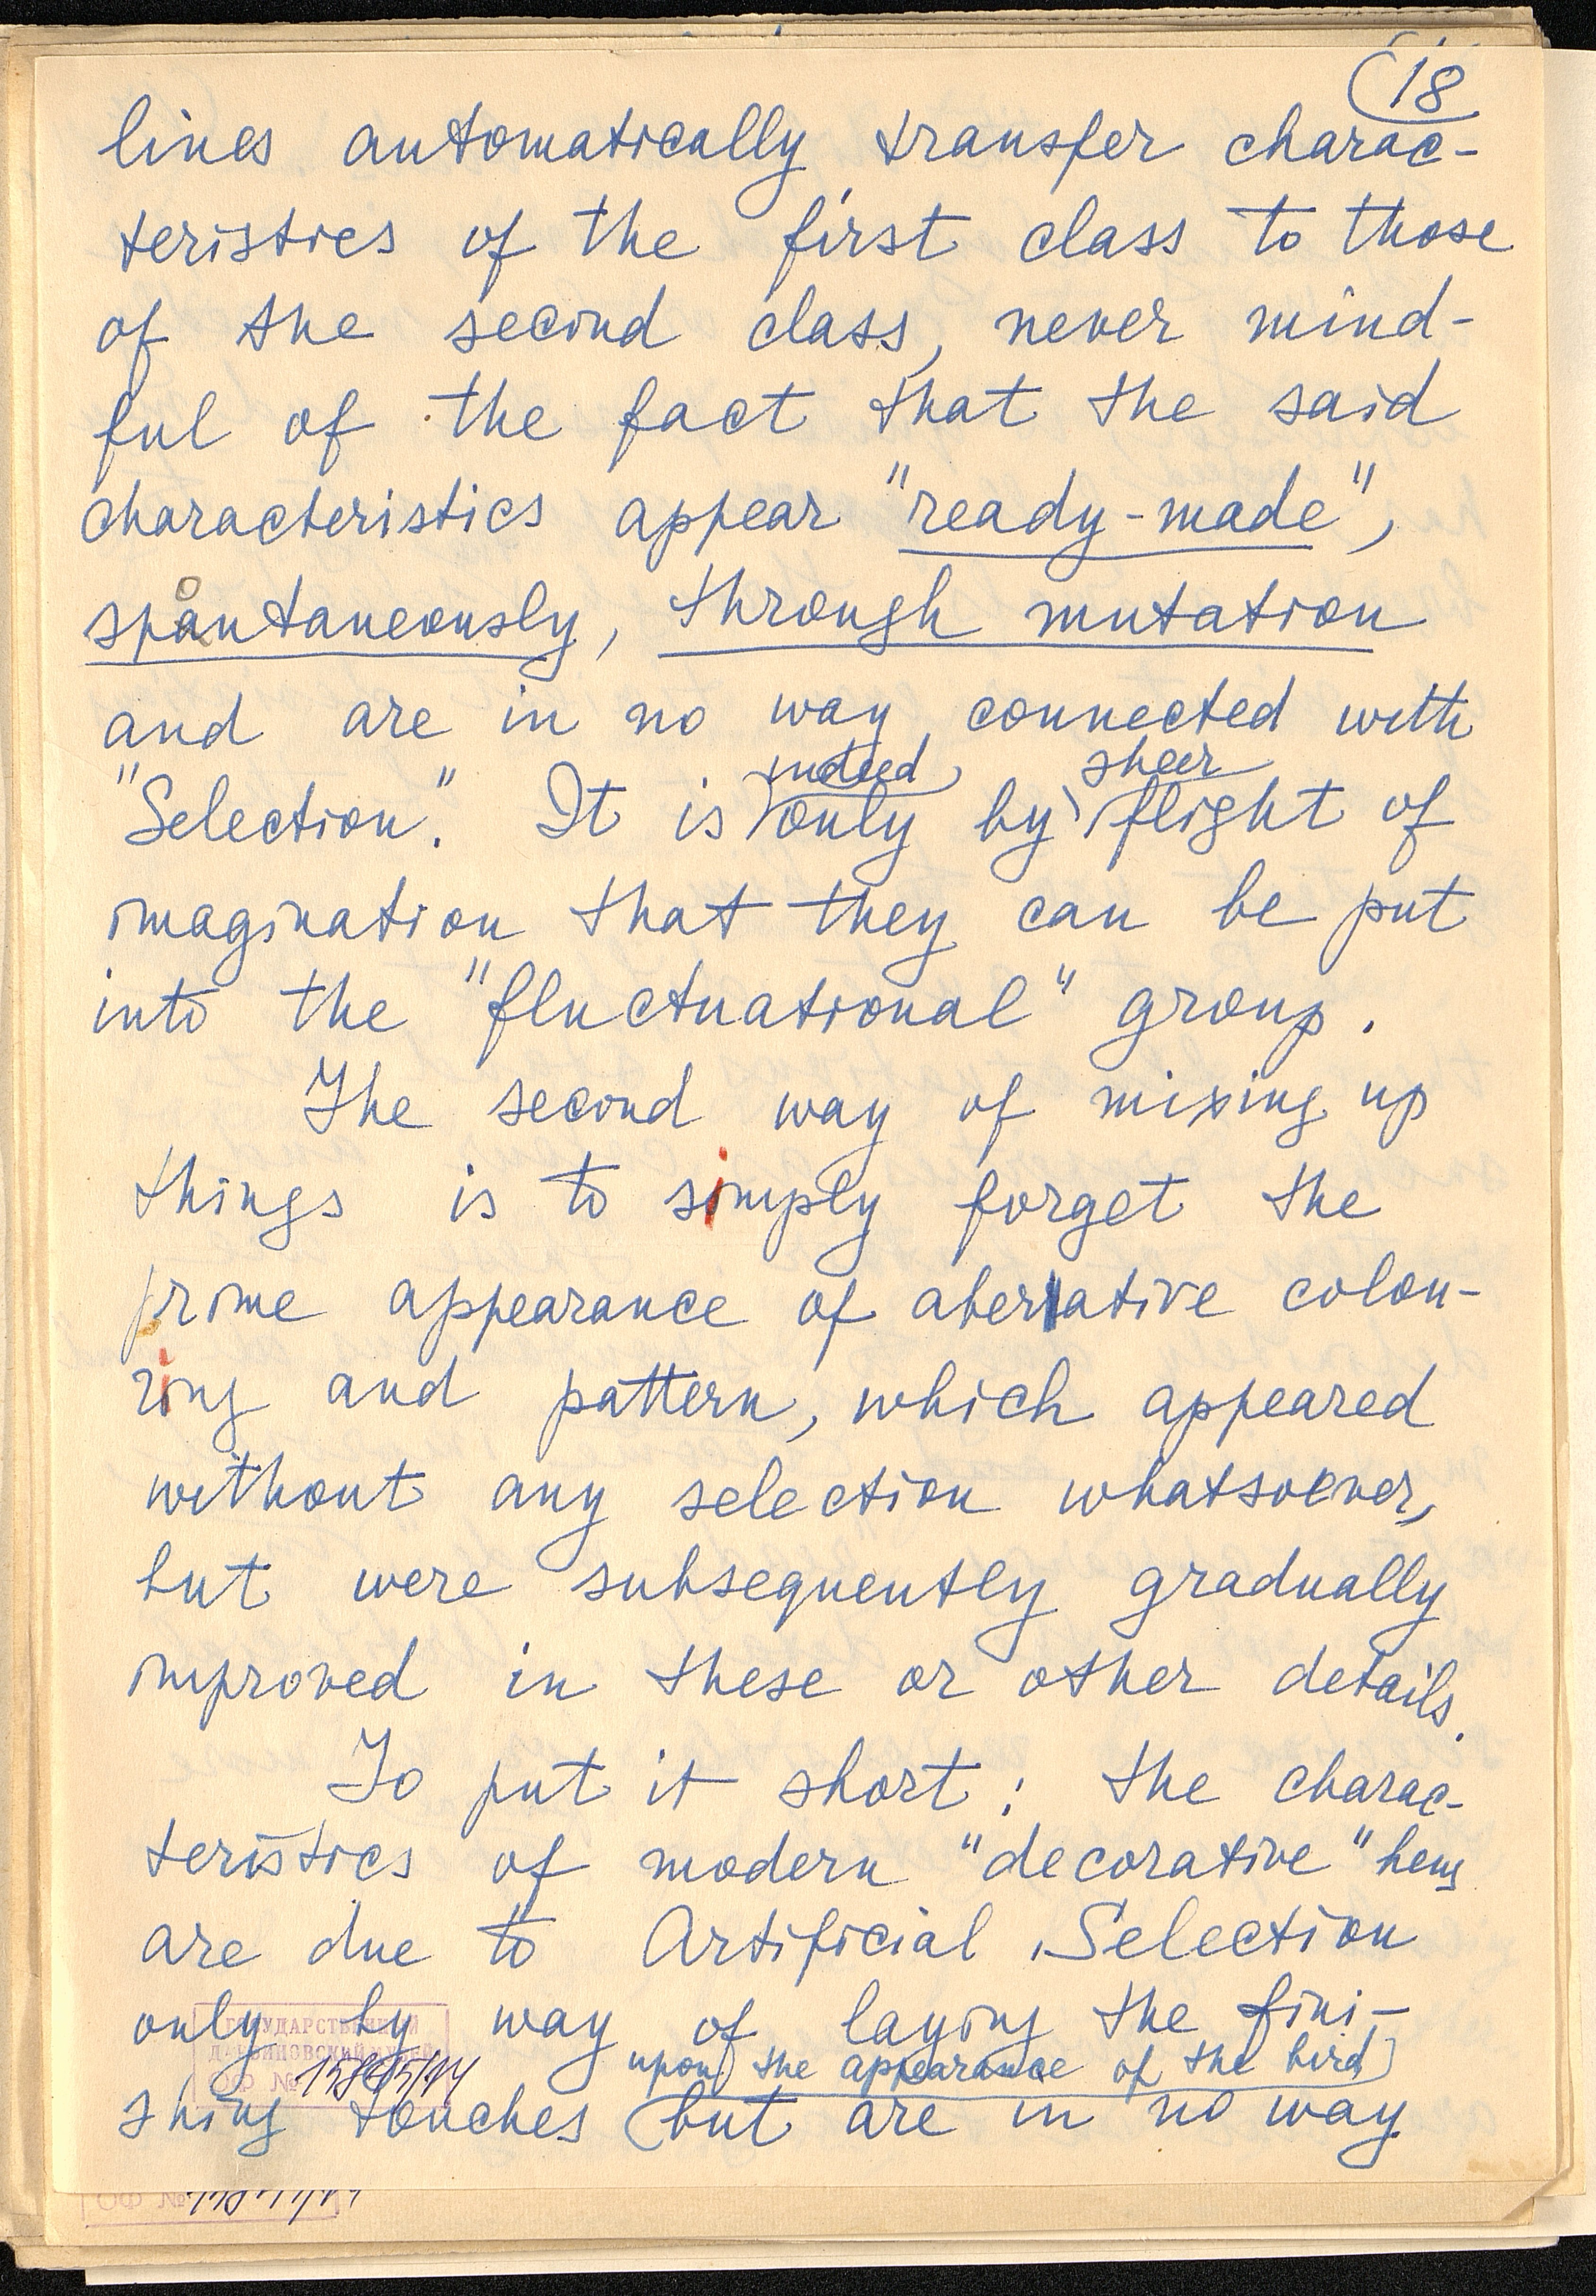 18
lines automatically transfer charac-
teristics of the first class to those
of the second class, never mind-
ful of the fact that the said
characteristics appear "ready-made",
spontaneously, through mutation
and are in no way connected with
indeed, sheer
"Selection". It is only by flight of
imagination that they can be put
into the "fluctuational" group.
The second way of mixing up
things is to simply forget the
prime appearance of aberrative colou-
ring and pattern, which appeared
without any selection whatsoever,
but were subsequently gradually
improved in these or other details.
To put it short: the charac-
teristics of modern "decorative" hens
are due to Artificial Selection
only by way of laying the fini-
upon the appearance of the bird
shing touches but are in no way
ГОСУДАРСТВЕННЫЙ
ДАРВИНОВСКИЙ МУЗЕЙ
ОФ №
ОФ №